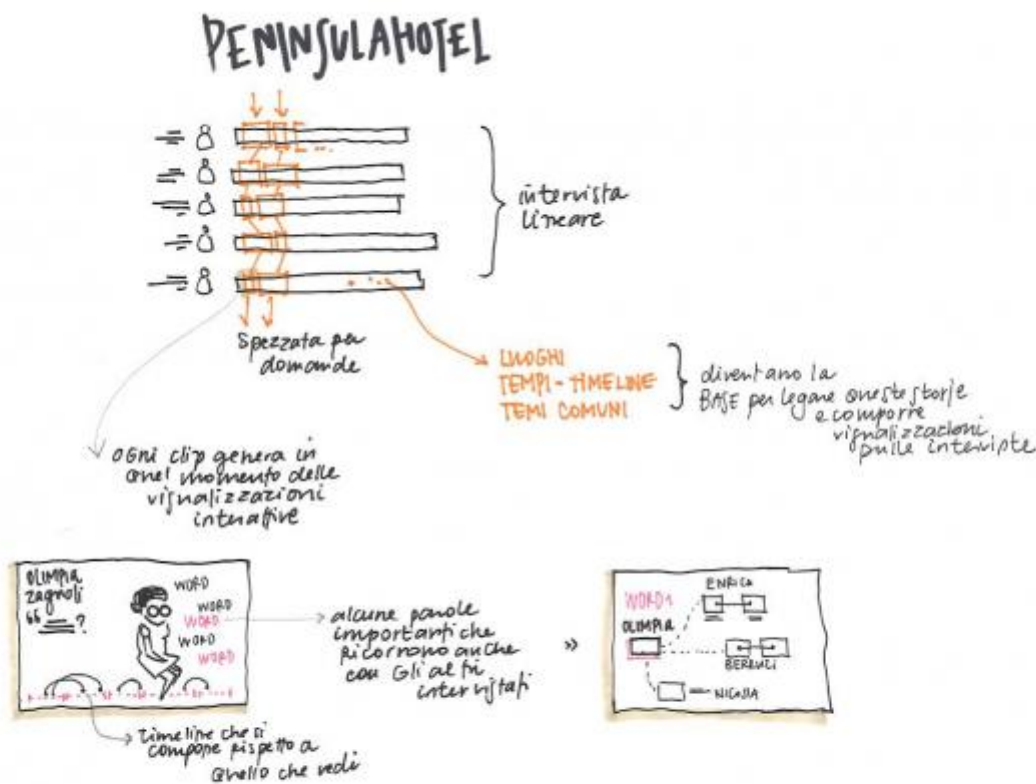 PENINSULAHOTEL
intervista
lineare
Spezzata per
domande
LUOGHI
TEMPI-TIMELINE
TEMI COMUNI
diventano la
BASE per legare queste storie
e comporre
visualizzazioni
sulle interviste
OGni clip genera in
quel momento delle
visualizzazioni
interattive
OLIMPIA
zagnoli
“ ?
WORD
WORD
WORD
WORD
WORD
alcune parole
importanti che
Ricorrono anche
con Gli altri
intervistati
»
WORD1
ENRICO
OLIMPIA
NICOSIA
timeline che si
compone rispetto a
quello che vedi